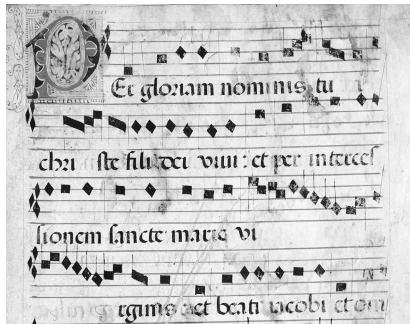 Et gloriam nominis tu i
chri ste fili dei vivi : et per interces
sionem sancte marie vi
rginis : et beati iacobi et om